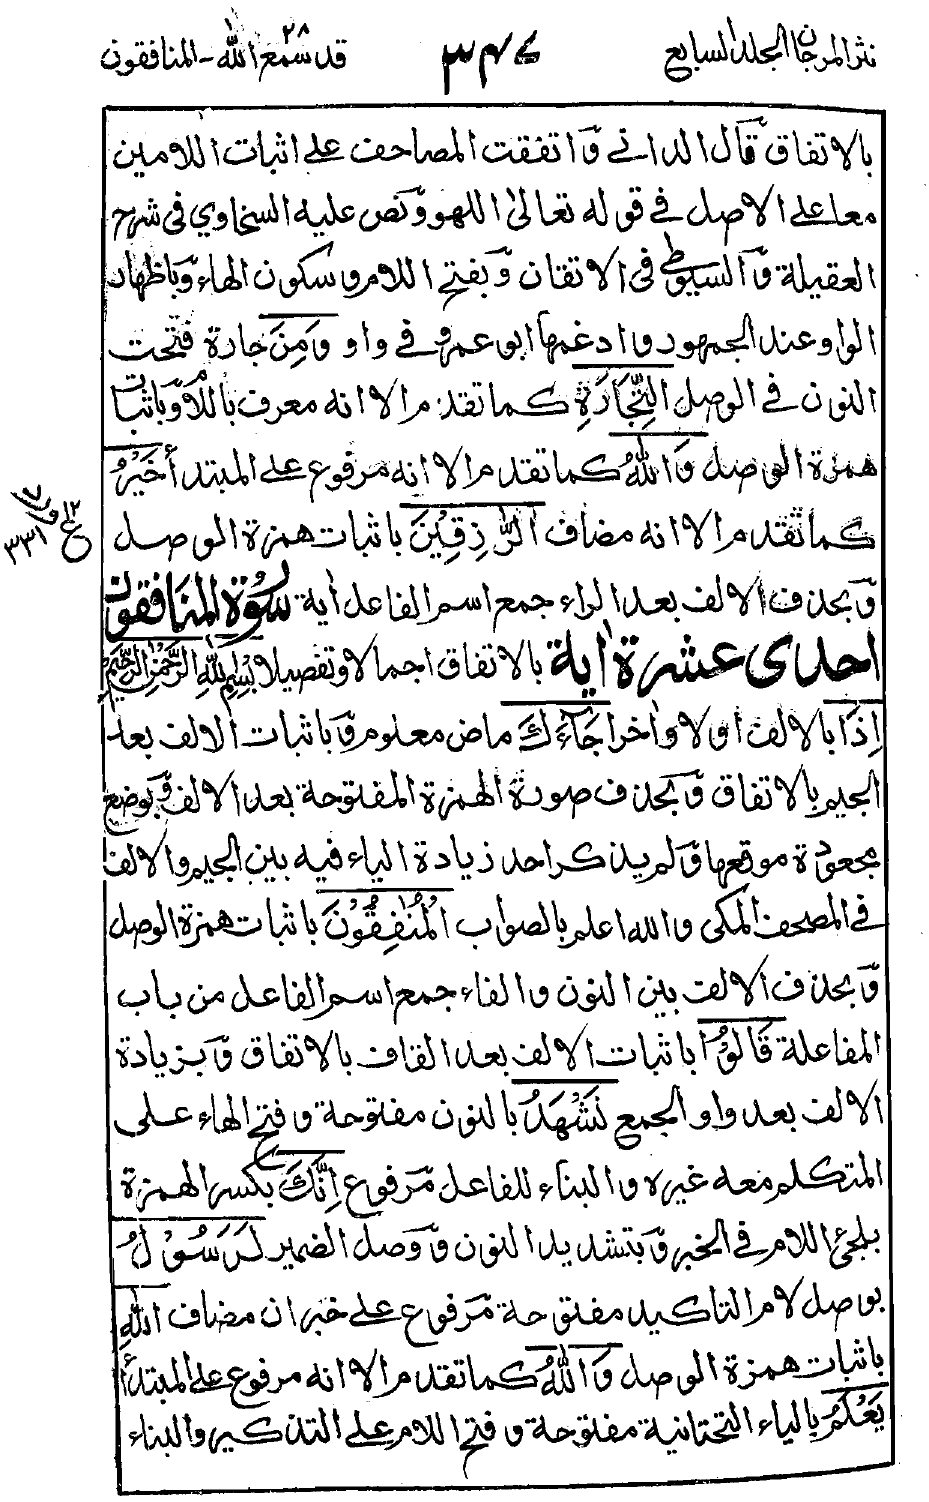 نثر المرجان المجلد السابع
٣٤٧
قد سمع الله ٢٨ - المنافقون
بالاتفاق قال الدانى وَاتفقت المصاحف على اثبات اللامين
معا على الاصل فى قوله تعالىٰ اللهو وَنص عليه السخاوي فى شرح
العقيلة وَالسيوطى فى الاتقان وَبفتح اللام وسكون الهاء وَباظهار
الواو عند الجمهور وادغمها ابو عمرو فى واو وَمِنَ جارة فتحت
النون فى الوصل التِّجَارَةِ كما تقدم الا انه معرف باللام وَباثبات
همزة الوصل وَاللهُ كما تقدم الا انه مرفوع على المبتدأ خَيْرُ
كما تقدم الا انه مضاف الرّٰزِقِيْنَ باثبات همزة الوصل
وَبحذف الالف بعد الراء جمع اسم الفاعل اٰية سُوْرَةُ الْمُنَافِقُوْنَ
احدى عشرة اٰية بالاتفاق اجمالا وتفصيلا بِسْمِ اللهِ الرَّحْمٰنِ الرَّحِيْمِ
اِذَا بالالف اولا واٰخرا جَآءَكَ ماض معلوم وَباثبات الالف بعد
الجيم بالاتفاق وَبحذف صورة الهمزة المفتوحة بعد الالف وَبوضع
مجعودة موقعها وَلم يذكر احد زيادة الياء فيه بين الجيم والالف
فى المصحف المكى والله اعلم بالصواب الْمُنٰفِقُوْنَ باثبات همزة الوصل
وَبحذف الالف بين النون والفاء جمع اسم الفاعل من باب
المفاعلة قَالُوْا باثبات الالف بعد القاف بالاتفاق وَبزيادة
الالف بعد واو الجمع نَشْهَدُ بالنون مفتوحة وفتح الهاء على
المتكلم معه غيره والبناء للفاعل مَرفوع اِنَّكَ بكسر الهمزة
بلجئ اللام فى الخبر وَبتشديد النون وَوصل الضمير لَرَسُوْلُ
بوصل لام التاكيد مفتوحة مَرفوع على خبر ان مضاف اللهِ
باثبات همزة الوصل وَاللهُ كما تقدم الا انه مرفوع على المبتدأ
يَعْلَمُ بالياء التحتانية مفتوحة وفتح اللام على التذكير والبناء